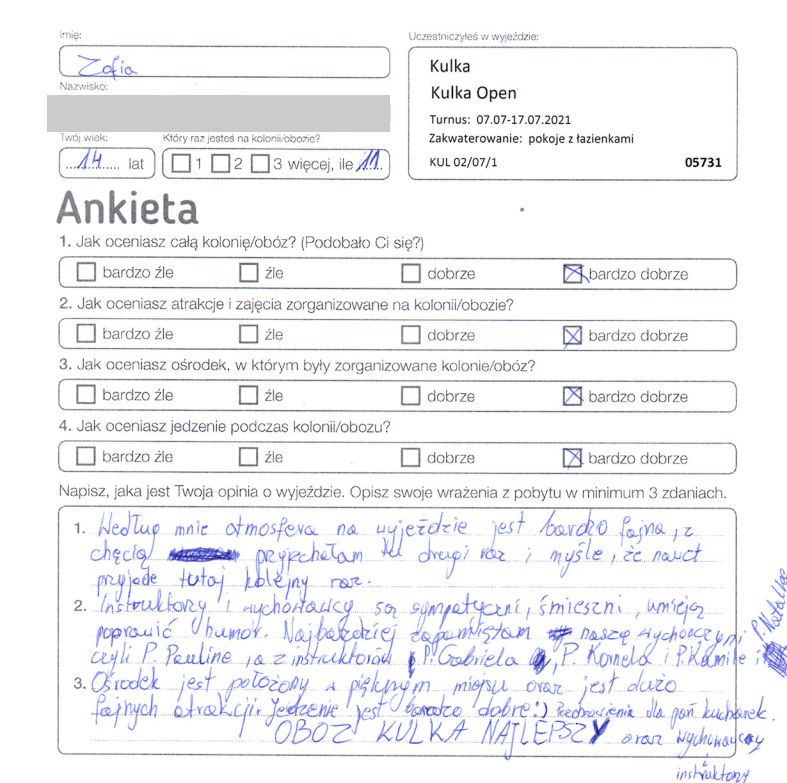 Imię:
Zofia
Nazwisko:
Twój wiek:
14 lat
Który raz jesteś na kolonii/obozie?
1 2 3 więcej, ile 11
Uczestniczyłeś w wyjeździe:
Kulka
Kulka Open
Turnus: 07.07-17.07.2021
Zakwaterowanie: pokoje z łazienkami
KUL 02/07/1 05731
Ankieta
1. Jak oceniasz całą kolonię/obóz? (Podobało Ci się?)
bardzo źle źle dobrze bardzo dobrze
2. Jak oceniasz atrakcje i zajęcia zorganizowane na kolonii/obozie?
bardzo źle źle dobrze bardzo dobrze
3. Jak oceniasz ośrodek, w którym były zorganizowane kolonie/obóz?
bardzo źle źle dobrze bardzo dobrze
4. Jak oceniasz jedzenie podczas kolonii/obozu?
bardzo źle źle dobrze bardzo dobrze
Napisz, jaka jest Twoja opinia o wyjeździe. Opisz swoje wrażenia z pobytu w minimum 3 zdaniach.
1. Według mnie atmosfera na wyjeździe jest bardzo fajna, z
chęcią przyjechałam tu drugi raz i myśle, że nawet
przyjade tutaj kolejny raz.
2. Instruktorzy i wychowawcy są sympatyczni, śmieszni, umieją
poprawić humor. Najbardziej zapamiętam naszą wychowczyni
czyli P. Pauline, a z instruktorów P. Gabriela, P. Kornela i P. Kamile i
P. Natalke
3. Ośrodek jest położony w pięknym miejsu oraz jest dużo
fajnych atrakcji. Jedzenie jest bardzo dobre :) Pozdrowienia dla pań kucharek
OBÓZ KULKA NAJLEPSZY oraz wychowawcy
i instruktorzy